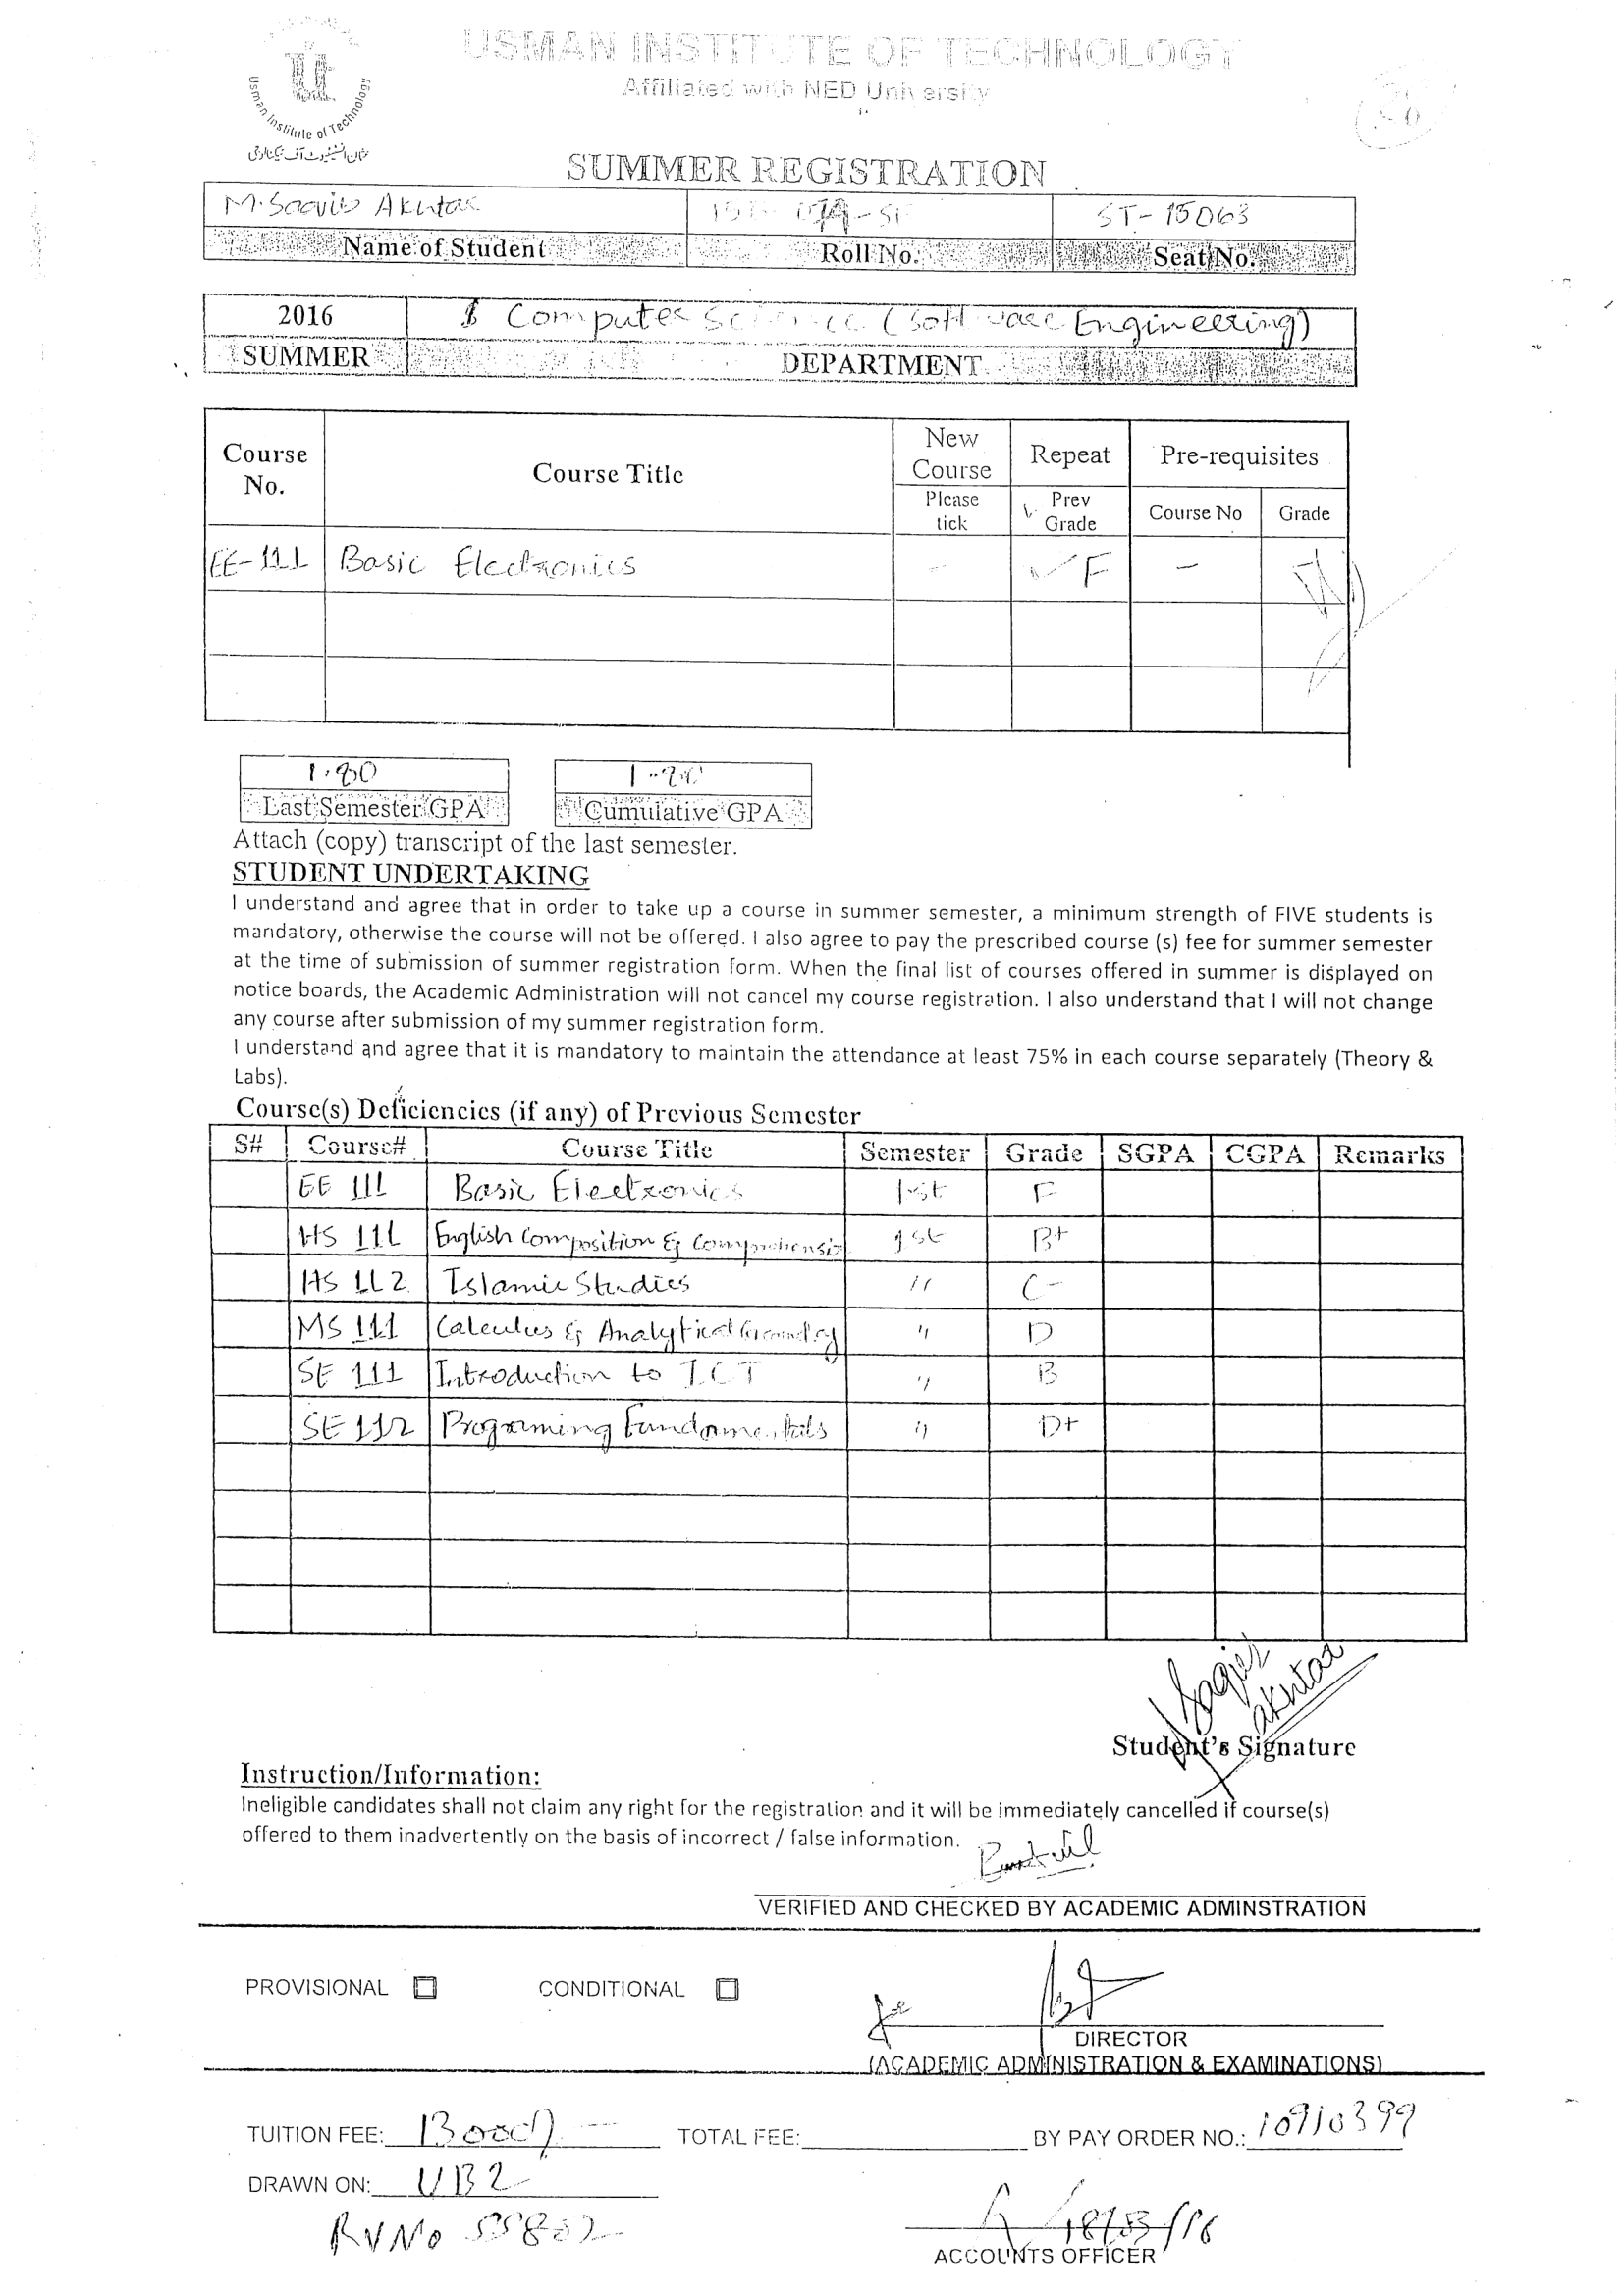 USMAN INSTITUTE OF TECHNOLOGY
Affiliated with NED University
Usman Institute of Technology
عثمان انسٹیٹیوٹ آف ٹیکنالوجی
SUMMER REGISTRATION
M. Akhtar ST-15063
Name of Student Roll No. Seat No.
2016 Computer Science (Software Engineering)
SUMMER DEPARTMENT
Course No. Course Title New Course Repeat Pre-requisites
Please tick Prev Grade Course No Grade
EE-111 Basic Electronics - ✓F -
1.80
Last Semester GPA Cumulative GPA
Attach (copy) transcript of the last semester.
STUDENT UNDERTAKING
I understand and agree that in order to take up a course in summer semester, a minimum strength of FIVE students is
mandatory, otherwise the course will not be offered. I also agree to pay the prescribed course (s) fee for summer semester
at the time of submission of summer registration form. When the final list of courses offered in summer is displayed on
notice boards, the Academic Administration will not cancel my course registration. I also understand that I will not change
any course after submission of my summer registration form.
I understand and agree that it is mandatory to maintain the attendance at least 75% in each course separately (Theory &
Labs).
Course(s) Deficiencies (if any) of Previous Semester
S# Course# Course Title Semester Grade SGPA CGPA Remarks
EE 111 Basic Electronics 1st F
HS 111 English Composition & Comprehensio 1st B+
HS 112 Islamic Studies " C-
MS 111 Calculus & Analytical " D
SE 111 Introduction to ICT " B
SE 112 Programing Fundamentals " D+
Akhtar
Student's Signature
Instruction/Information:
Ineligible candidates shall not claim any right for the registration and it will be immediately cancelled if course(s)
offered to them inadvertently on the basis of incorrect / false information.
VERIFIED AND CHECKED BY ACADEMIC ADMINSTRATION
PROVISIONAL CONDITIONAL
DIRECTOR
(ACADEMIC ADMINISTRATION & EXAMINATIONS)
TUITION FEE: TOTAL FEE: BY PAY ORDER NO.: 10910399
DRAWN ON: UB2
RV No 55802
ACCOUNTS OFFICER